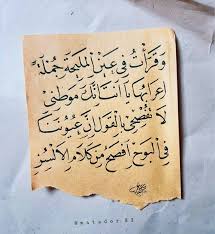 وَقَرَأْتُ فِي عَيْنِ الْمَلِيحَةِ جُمْلَةً
إِعْرَابُهَا يَا أَنْتَ إِنَّكَ مَوْطِنِي
لَا تُفْصِحِي بِالْقَوْلِ إِنَّ عُيُونَنَا
فِي الْبَوْحِ أَفْصَحُ مِنْ كَلَامِ الْأَلْسُنِ